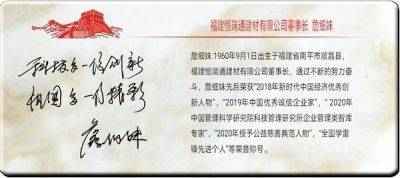 福建恒瑞通建材有限公司董事长 詹细妹
科技多一份创新
祖国多一份精彩
詹细妹
詹细妹:1960年9月1日出生于福建省南平市顺昌县,
福建恒瑞通建材有限公司董事长,通过不断的努力奋
斗,詹细妹先后荣获"2018年新时代中国经济优秀创
新人物","2019年中国优秀诚信企业家","2020年
中国管理科学研究院科技管理研究所企业管理类智库
专家","2020年授予公益慈善典范人物","全国学雷
锋先进个人"等荣誉称号。